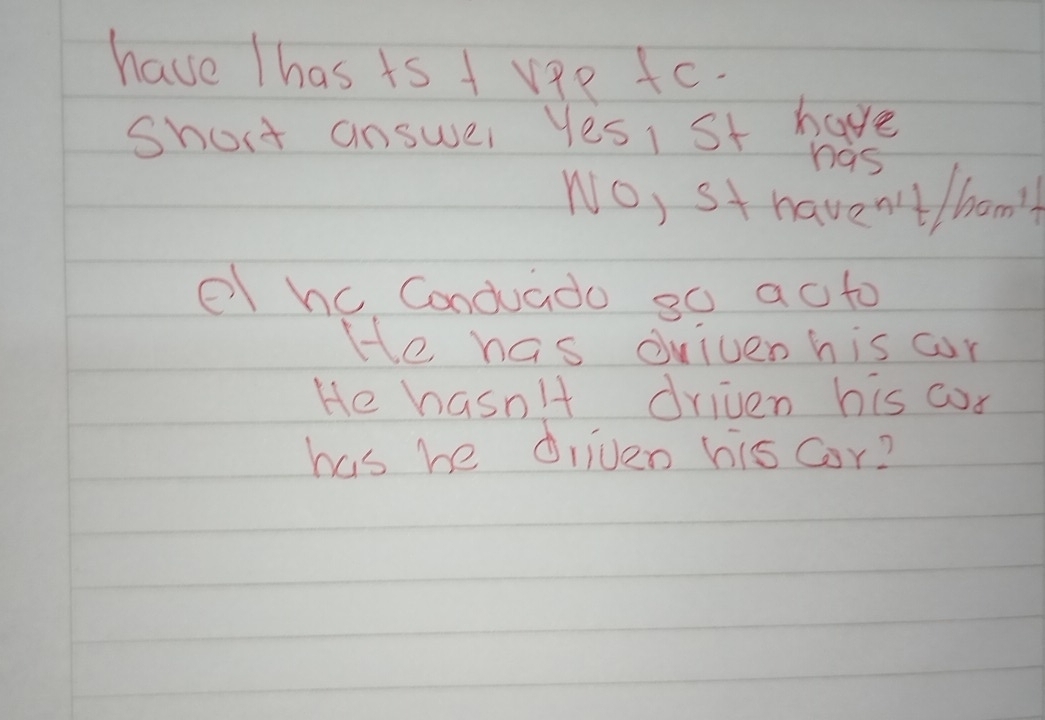 have / has + s + vpp + c.
Short answer Yes, S + have
has
No, S + haven't / hasn't
el ha conducido so auto
He has driven his car
He hasn't driven his car
has he driven his car?